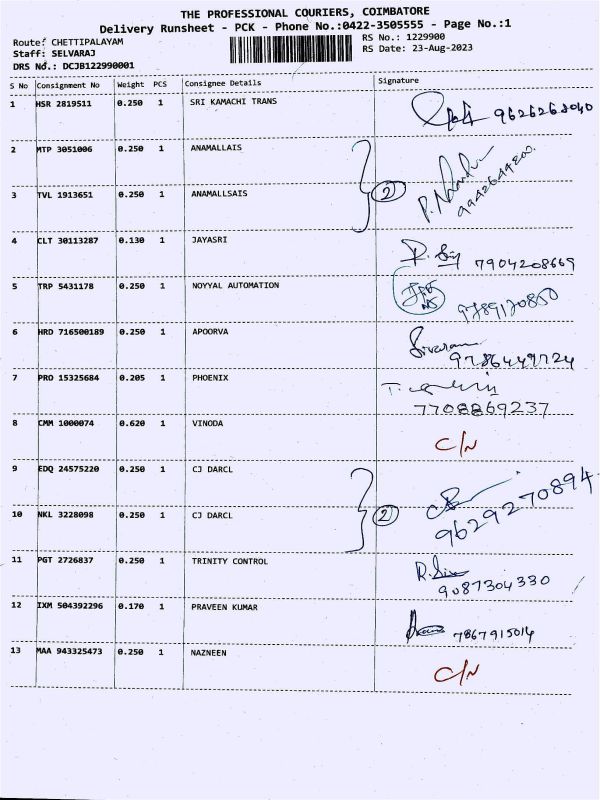 THE PROFESSIONAL COURIERS, COIMBATORE
Delivery Runsheet - PCK - Phone No.:0422-3505555 - Page No.:1
Route: CHETTIPALAYAM
Staff: SELVARAJ
DRS No.: DCJB122990001
RS No.: 1229900
RS Date: 23-Aug-2023
S No Consignment No Weight PCS Consignee Details Signature
1 HSR 2819511 0.250 1 SRI KAMACHI TRANS
2 MTP 3051006 0.250 1 ANAMALLAIS
3 TVL 1913651 0.250 1 ANAMALLSAIS 2
4 CLT 30113287 0.130 1 JAYASRI 7904208669
5 TRP 5431178 0.250 1 NOYYAL AUTOMATION
6 HRD 716500189 0.250 1 APOORVA Sivaram
7 PRO 15325684 0.205 1 PHOENIX
7708869237
8 CMM 1000074 0.620 1 VINODA C/N
9 EDQ 24575220 0.250 1 CJ DARCL
10 NKL 3228098 0.250 1 CJ DARCL 2 9629270894
11 PGT 2726837 0.250 1 TRINITY CONTROL
9087304330
12 IXM 504392296 0.170 1 PRAVEEN KUMAR 7867915014
13 MAA 943325473 0.250 1 NAZNEEN C/N